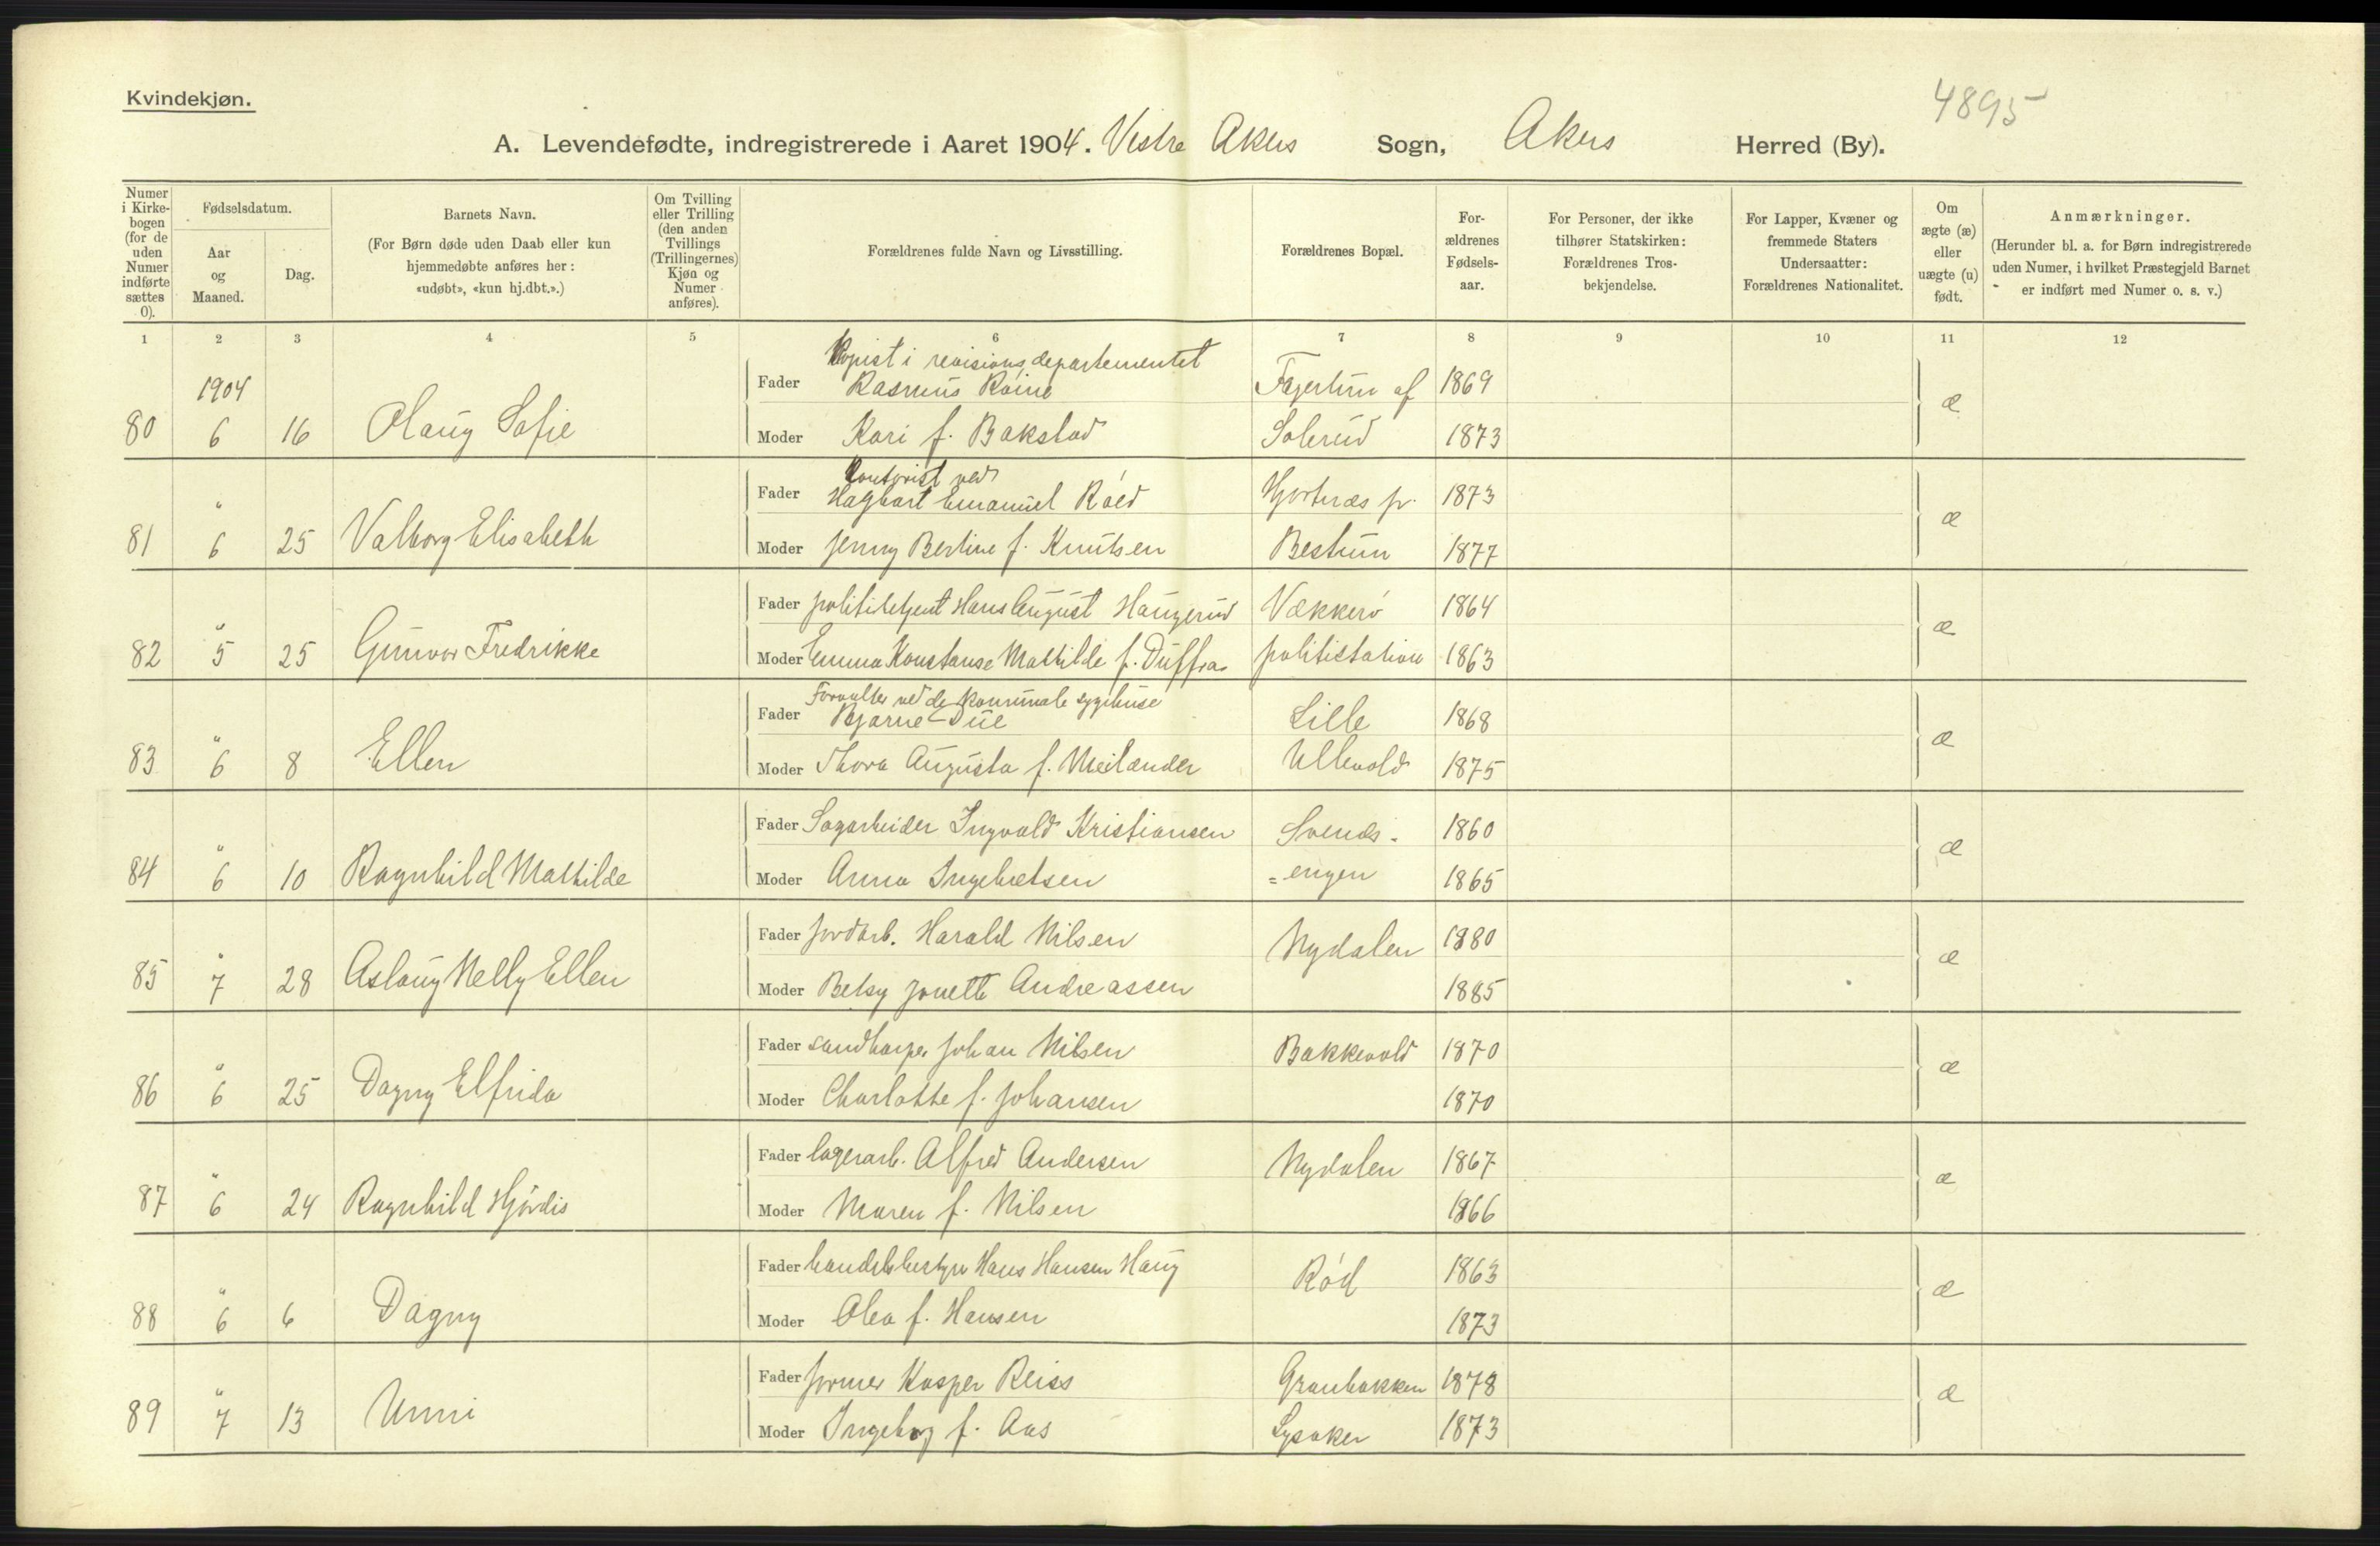 Kvindekjøn.
4895
A. Levendefødte, indregistrerede i Aaret 1904. Vestre Akers Sogn, Akers Herred (By).
Numer i Kirkebogen (for de uden Numer indførte sættes 0).
Fødselsdatum.
Aar og Maaned.
Dag.
Barnets Navn.
(For Børn døde uden Daab eller kun hjemmedøbte anføres her: «udøbt», «kun hj.dbt.».)
Om Tvilling eller Trilling (den anden Tvillings (Trillingernes) Kjøn og Numer anføres).
Forældrenes fulde Navn og Livsstilling.
Forældrenes Bopæl.
Forældrenes Fødselsaar.
For Personer, der ikke tilhører Statskirken: Forældrenes Trosbekjendelse.
For Lapper, Kvæner og fremmede Staters Undersaatter: Forældrenes Nationalitet.
Om ægte (æ) eller uægte (u) født.
Anmærkninger.
(Herunder bl. a. for Børn indregistrerede uden Numer, i hvilket Præstegjeld Barnet er indført med Numer o. s. v.)
1 2 3 4 5 6 7 8 9 10 11 12
Kopist i revisionsdepartementet
1904 Fader Rasmus Röine Fagertun af 1869
80 6 16 Olaug Sofie Moder Kari f. Bakstad Solerud 1873 æ
Kontorist ved
" Fader Hagbart Emanuel Röed Hjortnæs pr. 1873
81 6 25 Valborg Elisabeth Moder Jenny Bertine f. Knutsen Bestum 1877 æ
" Fader politibetjent Hans August Haugerud Vækkerö 1864
82 5 25 Gunvor Fredrikke Moder Emma Konstanse Mathilde f. Duffra politistation 1863 æ
Forvalter ved de kommunale sygehuse
" Fader Bjarne Due Lille 1868
83 6 8 Ellen Moder Thora Augusta f. Meilænder Ullevold 1875 æ
" Fader Sagarbeider Ingvald Kristiansen Svends- 1860
84 6 10 Ragnhild Mathilde Moder Anna Ingebretsen =engen 1865 æ
" Fader jordarb. Harald Nilsen Nydalen 1880
85 7 28 Aslaug Nelly Ellen Moder Betsy Jonette Andreassen 1885 æ
" Fader sandharper Johan Nilsen Bakkevold 1870
86 6 25 Dagny Elfrida Moder Charlotte f. Johansen 1870 æ
" Fader lagerarb. Alfred Andersen Nydalen 1867
87 6 24 Ragnhild Hjördis Moder Maren f. Nilsen 1866 æ
" Fader handelsbestyr Hans Hansen Haug Röd 1863
88 6 6 Dagny Moder Olea f. Hansen 1873 æ
" Fader former Kasper Reiss Granbakken 1878
89 7 13 Unni Moder Ingeborg f. Aas Lysaker 1873 æ